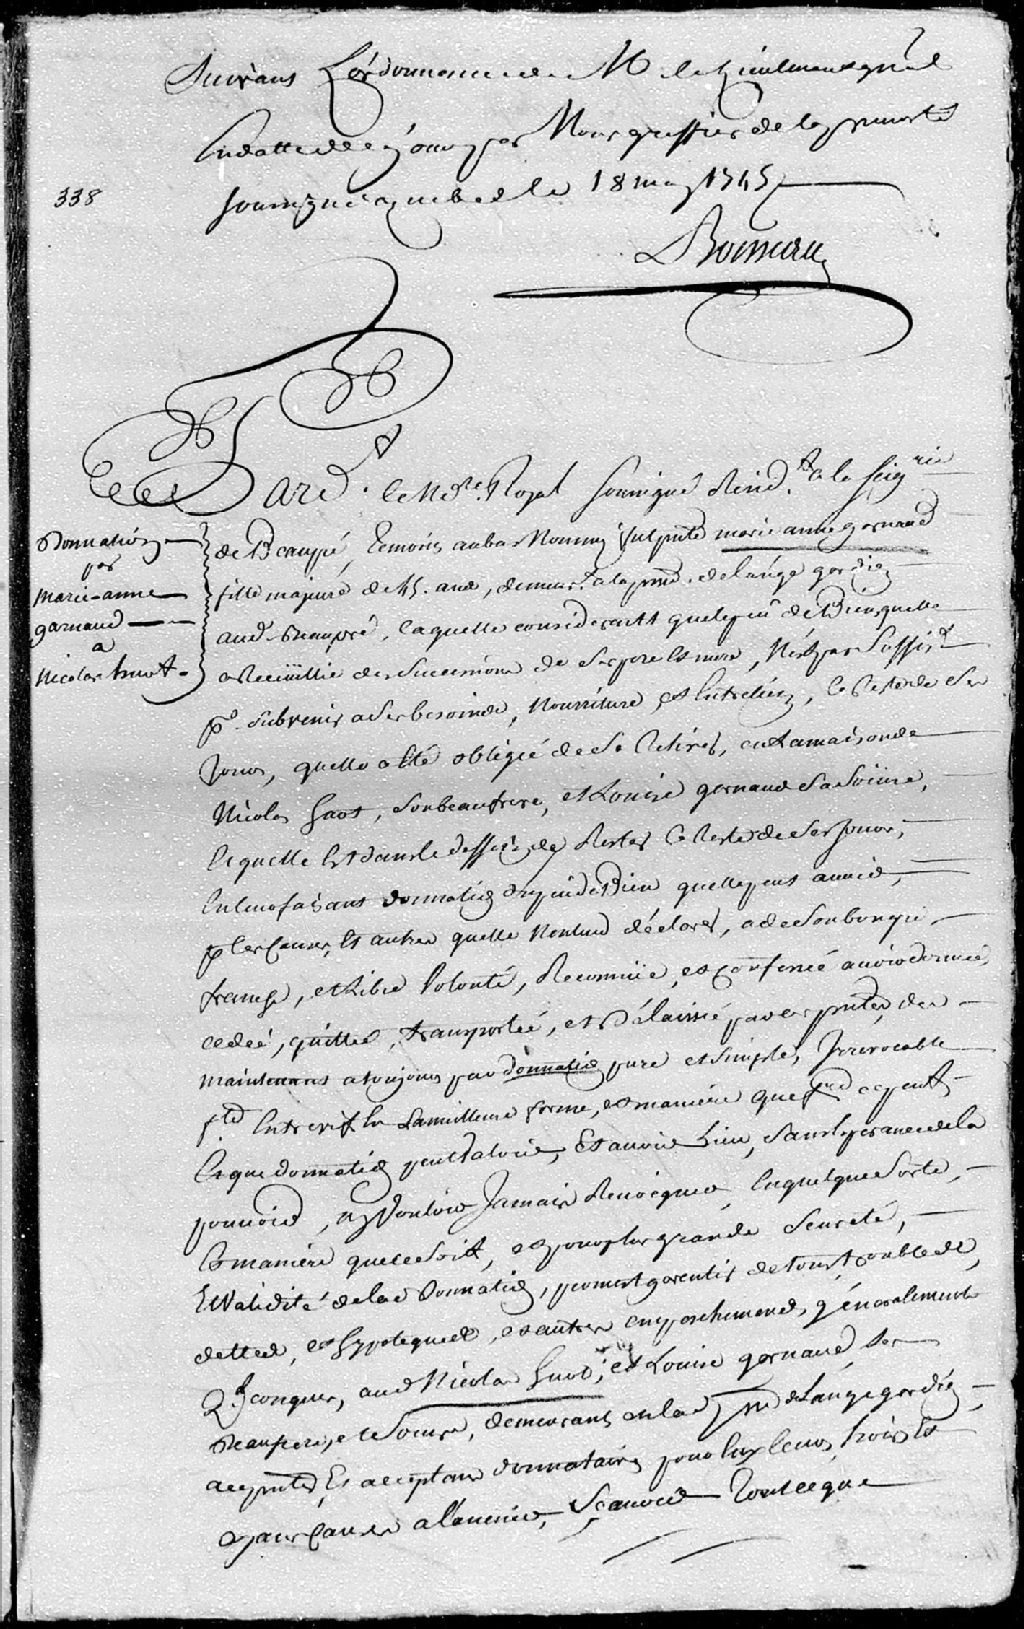 Suivant L'ordonnance de M le Lieutenant gñal
En datte de ce jour par Nous greffier de la prevosté
soussigné a quebec le 18 may 1745
Boisseau
338
Pard. le Nore. Royal Soussigné Resid. à la Seigrie
Donnation
par
Marie-anne
garnaud
a
Nicolas huot.
de Beaupré, temoins aubas Nommés fut pnte marie anne garnaud
fille majure de 45. ans, demeurt. a la pnd. de l'ange gardien
aud. Beaupré, laquelle considerant que le peu de Bien quelle
a Recüillie des Successions de Ses pere Et mere, N'est pas Suffist
pr. Subvenir a Ses besoinds, Nourriture, et Entretien, le Reste de Ses
Jours, quelle a Eté obligéé de Se Retirer, en La maison de
Nicolas huot, Son beaufrere, et Louise garnaud Sa Soeure,
Lequelle Est dans le dessein de Rester le Reste de Ses Jours,
En leur faisant donnation du peu de Bien quelle peut avoir,
pr les causes, Et autres quelle N'entend déclarer, a de Son bon gré,
franche, et Libre Volonté, Reconnüe, et Confessé avoir donné,
cedéé, quittéé, transportéé, et Délaissé par ces pntes, des
maintenant a toujours par donnation pure et Simple, Irrevocable
fte Entre vif En La meilleure forme, et maniere que
Lesque donnation peut Valoir, Et avoir Lieu, Sans Esperance de la
pouvoir, ny Vouloir Jamais Revocquer, En quelque Sorte,
Et maniere que ce Soit, et pour plus grande Seureté,
Et Validité de lad Donnation, promet garentir de tous troubles de
dettes, et hypoteques, et autres empeschements, généralement
Qlconques, aud Nicolas huot, et Louise garnaud, Ses
Beaufrere, et Soeure, demeurant en lad. pnd de L'ange gardien,
acepntes, Et acceptans donnataires pour Eux leurs hoirs Et
ayans Causes a l'avenir, Sçavoir Tout ce que